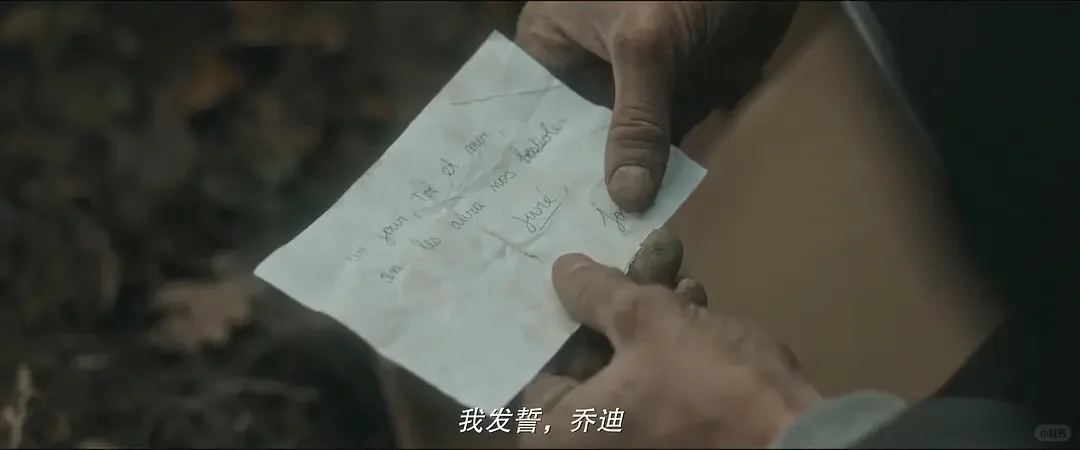 Un jour, toi et moi,
on les aura nos bestioles
Juré, Jo
我发誓，乔迪
小红书